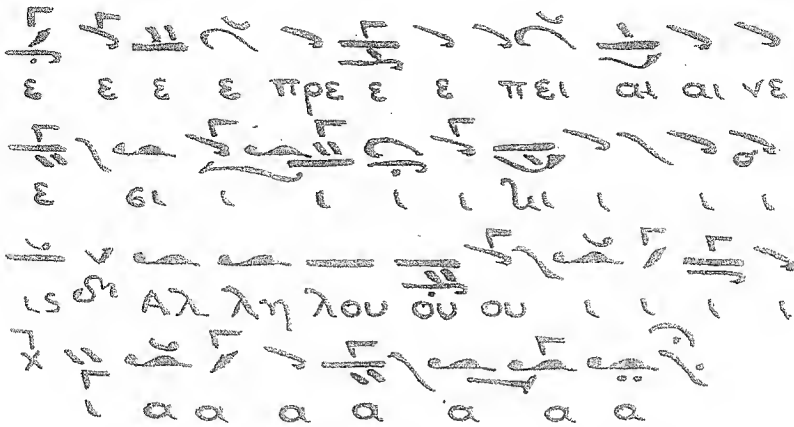 ε ε ε ε πρε ε ε πει αι αι νε
ε σι ι ι ι ι ι ι ι ι
ις Αλ λη λου ου ου ι ι ι ι
ι α α α α α α α